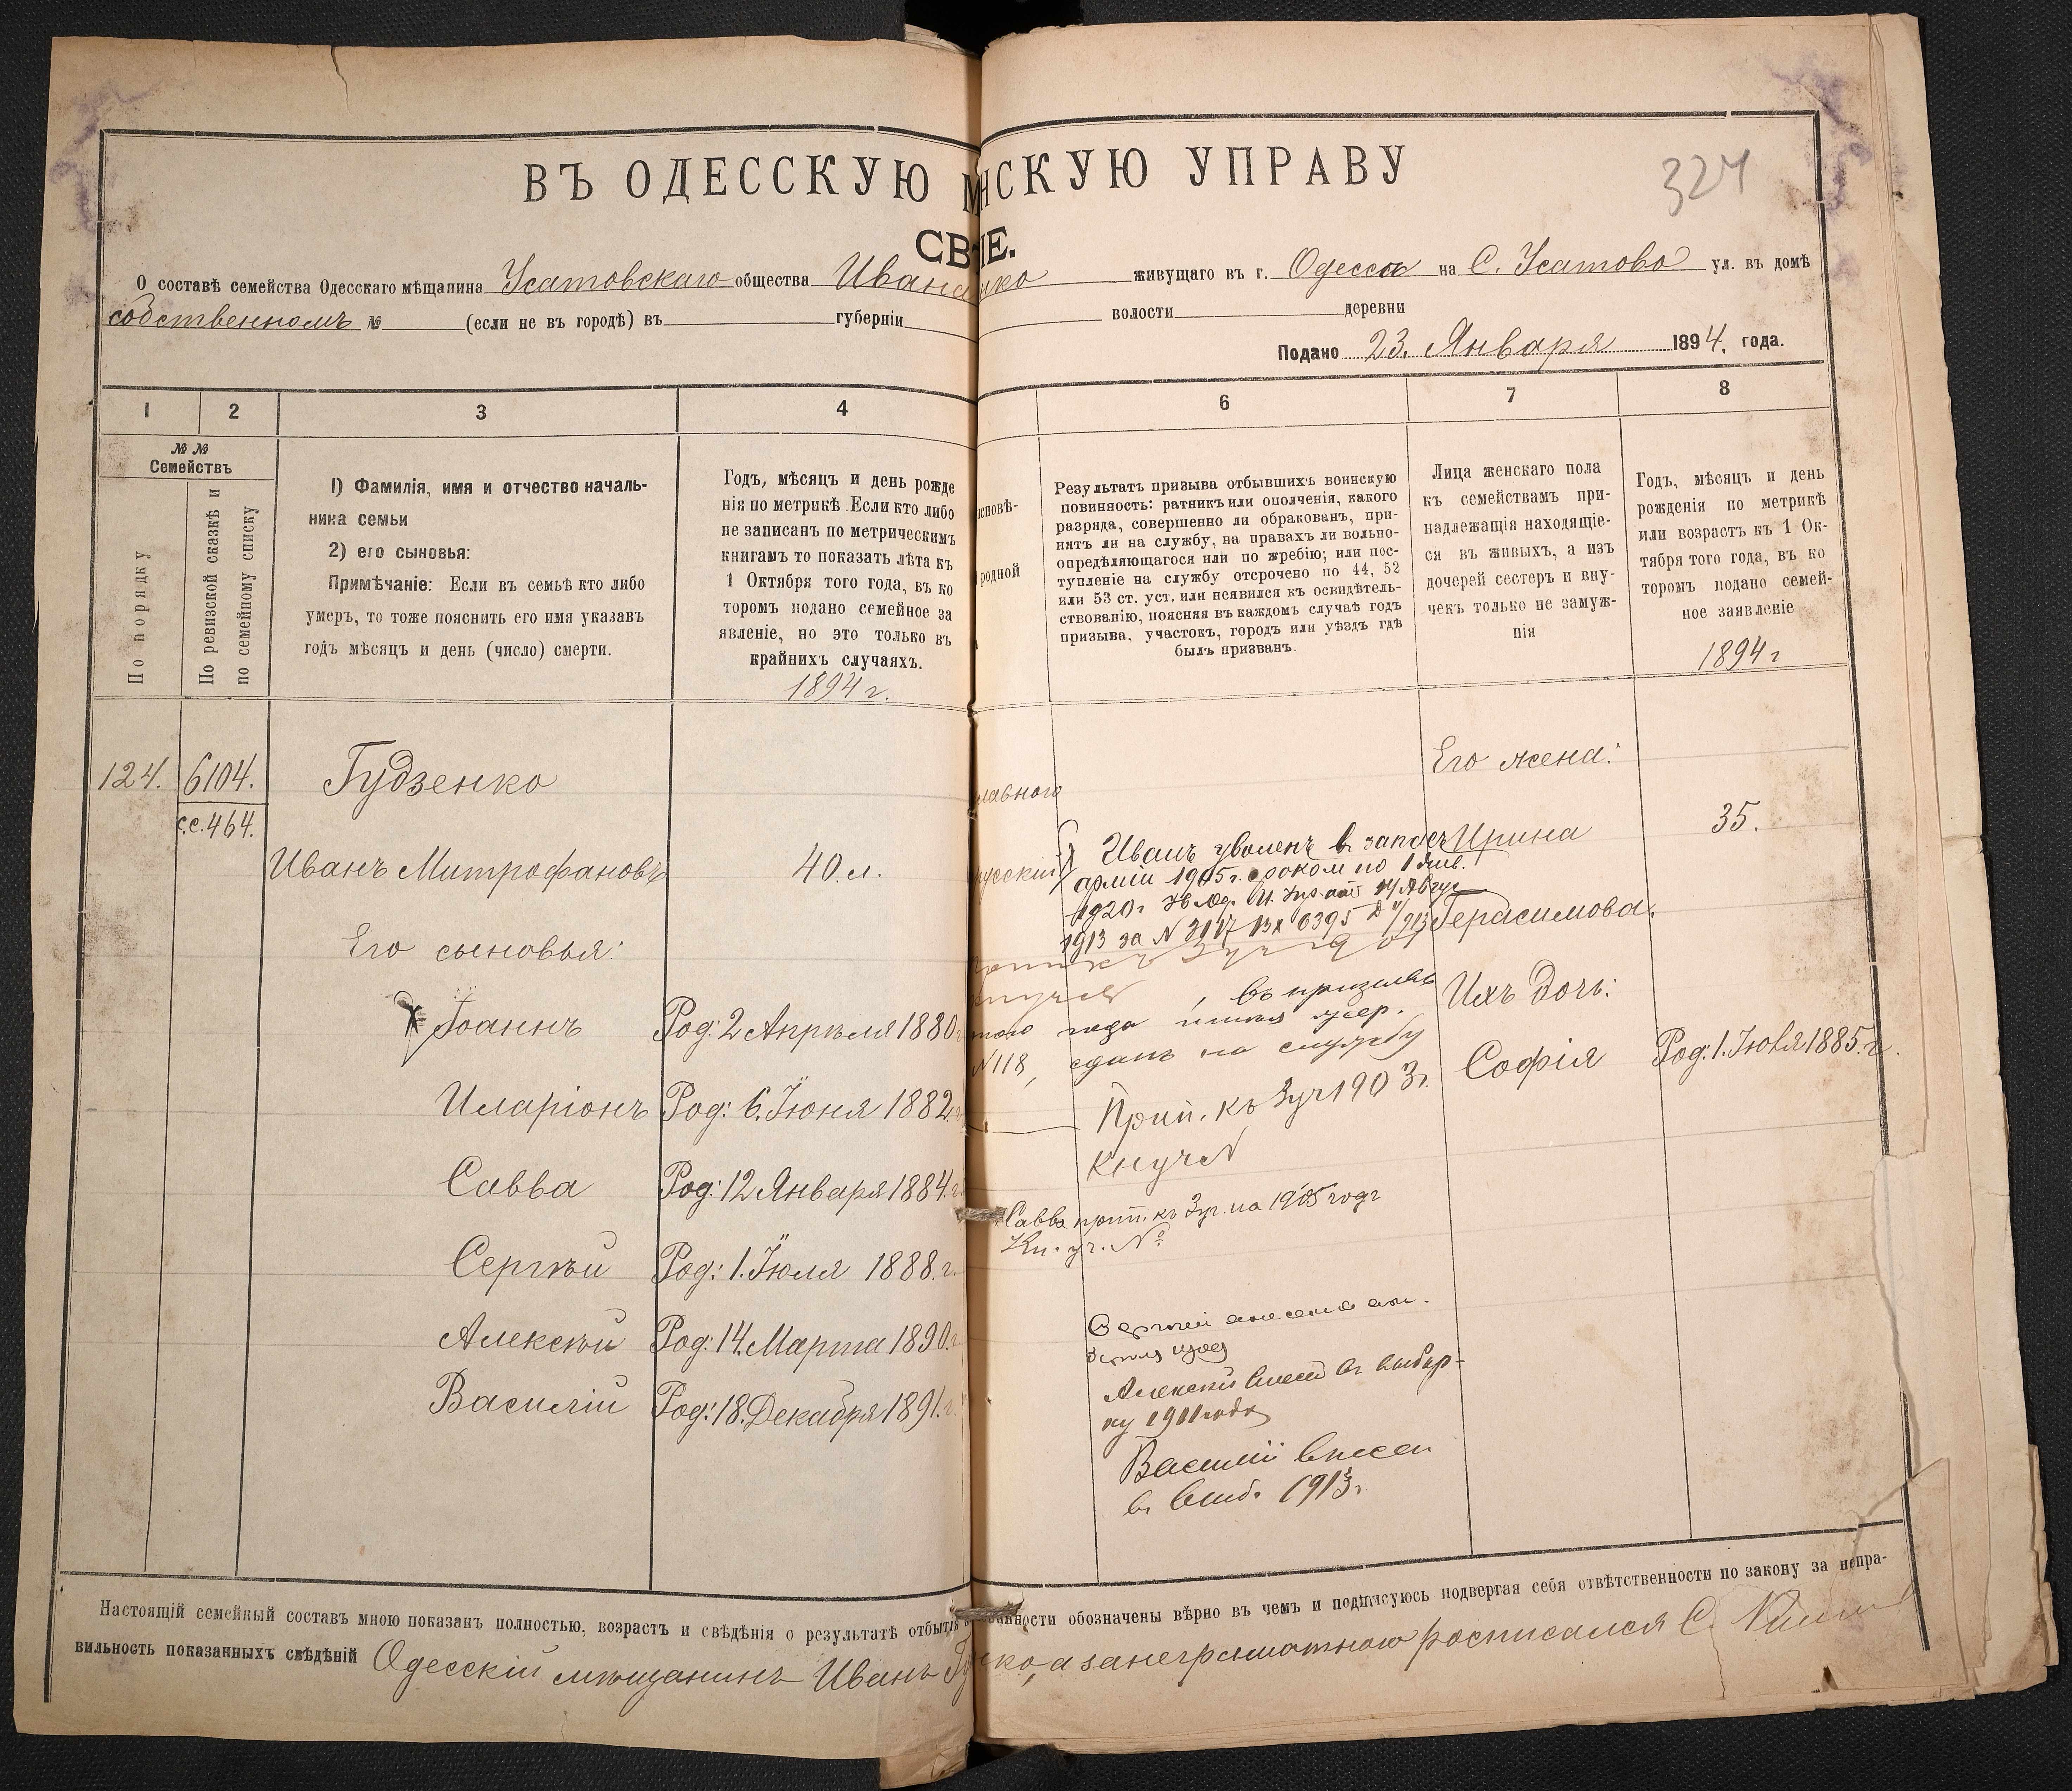 ВЪ ОДЕССКУЮ М НСКУЮ УПРАВУ
324
СВ ІЕ.
О составѣ семейства Одесскаго мѣщанина Усатовскаго общества Ивана нко живущаго въ г. Одесса на С. Усатово ул. въ домѣ
собственномъ № (если не въ городѣ) въ губерніи волости деревни
Подано 23. Января 1894. года.
1 2 3 4 6 7 8
№ № Семействъ
По порядку
По ревизской сказкѣ и по семейному списку
1) Фамилія, имя и отчество началь-
ника семьи
2) его сыновья:
Примѣчаніе: Если въ семьѣ кто либо
умеръ, то тоже пояснить его имя указавъ
годъ мѣсяцъ и день (число) смерти.
Годъ, мѣсяцъ и день рожде
нія по метрикѣ. Если кто либо
не записанъ по метрическимъ
книгамъ то показать лѣта къ
1 Октября того года, въ ко
торомъ подано семейное за
явленіе, но это только въ
крайнихъ случаяхъ.
1894 г.
исповѣ-
родной
Результатъ призыва отбывшихъ воинскую
повинность: ратникъ или ополченія, какого
разряда, совершенно ли обракованъ, при-
нятъ ли на службу, на правахъ ли вольно-
опредѣляющагося или по жребію; или пос-
тупленіе на службу отсрочено по 44, 52
или 53 ст. уст. или неявился къ освидѣтель-
ствованію, поясняя въ каждомъ случаѣ годъ
призыва, участокъ, городъ или уѣздъ гдѣ
былъ призванъ.
Лица женскаго пола
къ семействамъ при-
надлежащія находящіе-
ся въ живыхъ, а изъ
дочерей сестеръ и вну-
чекъ только не замуж-
нія
Годъ, мѣсяцъ и день
рожденія по метрикѣ
или возрастъ къ 1 Ок-
тября того года, въ ко
торомъ подано семей-
ное заявленіе
1894 г
124. 6104. Гудзенко
с.с. 464.
Иванъ Митрофановъ 40. л.
Его сыновья:
Іоаннъ Род: 2 Апрѣля 1880 г
Иларіонъ Род: 6. Іюня 1882. г
Савва Род: 12 Января 1884. г
Сергѣй Род: 1. Іюля 1888. г.
Алексѣй Род: 14. Марта 1890. г
Василій Род: 18. Декабря 1891. г.
лавнаго
русскій
Иванъ уволенъ в запас
арміи 1905 г. срокомъ по 1 Янв.
1920 г 14 Авгус
1913 за N 3117 Вх 6395
въ призывъ
того года
N 118, сданъ на службу
Прип. къ 3 уч 1903 г.
К н уч N
Савва прип. къ 3 уч. на 1905 годъ
Кн. уч. №
Сергѣй
Алексѣй внесен в выбор-
ку 1911 года
Василій внесен
в выб. 1913 г
Его жена:
Ирина 35.
Герасимова.
Ихъ дочь:
Софія Род: 1. Іюля 1885. г.
Настоящій семейный составъ мною показанъ полностью, возрастъ и свѣдѣнія о результатѣ отбытія в винности обозначены вѣрно въ чемъ и подписуюсь подвергая себя отвѣтственности по закону за непра-
вильность показанныхъ свѣдѣній Одесскій мѣщанинъ Иванъ Гу нко, а за неграмотнаго росписался С.